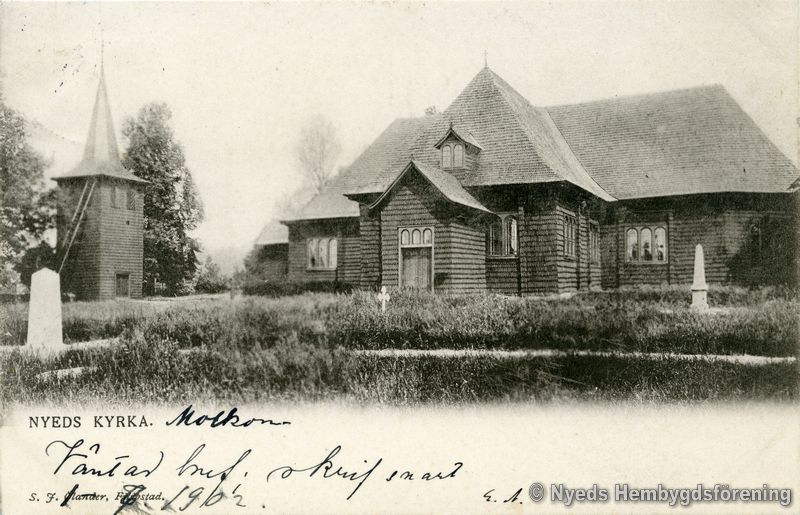 NYEDS KYRKA. Molkom
Väntar bref. skrif snart
S. J. Olander, Filipstad.
1902.
E. A
© Nyeds Hembygdsförening